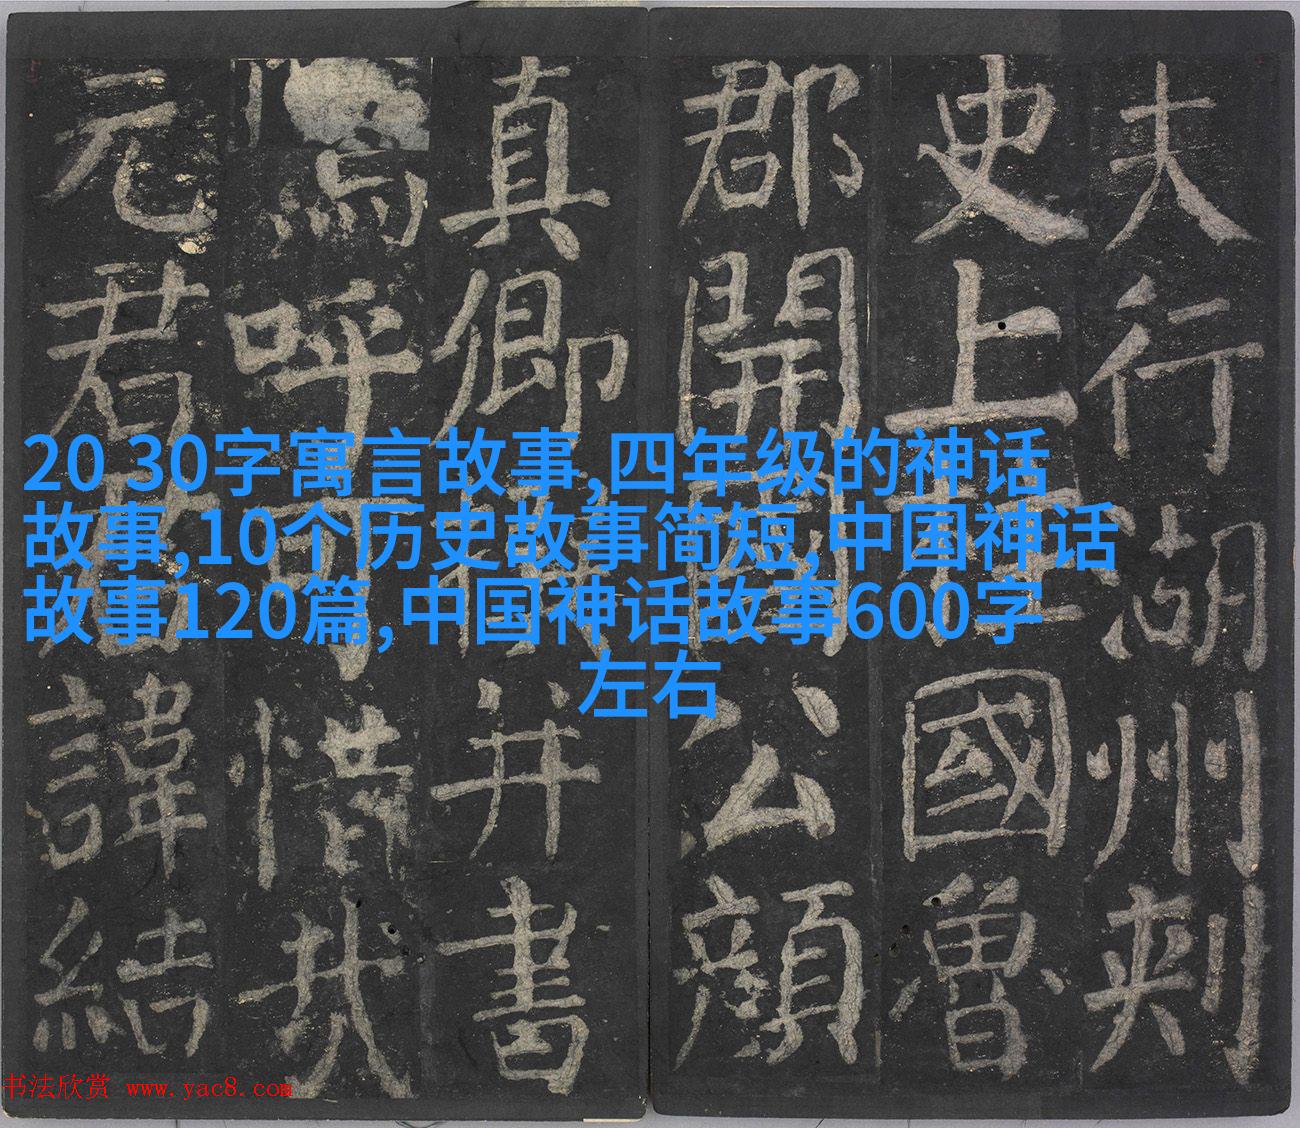 夫行湖州刺
史上柱國魯
郡開國公顏
真卿撰并書
嗚呼可惜哉
元君君諱結
20 30字寓言故事,四年级的神话
故事,10个历史故事简短,中国神话
故事120篇,中国神话故事600字
左右
书法欣赏 www.yac8.com